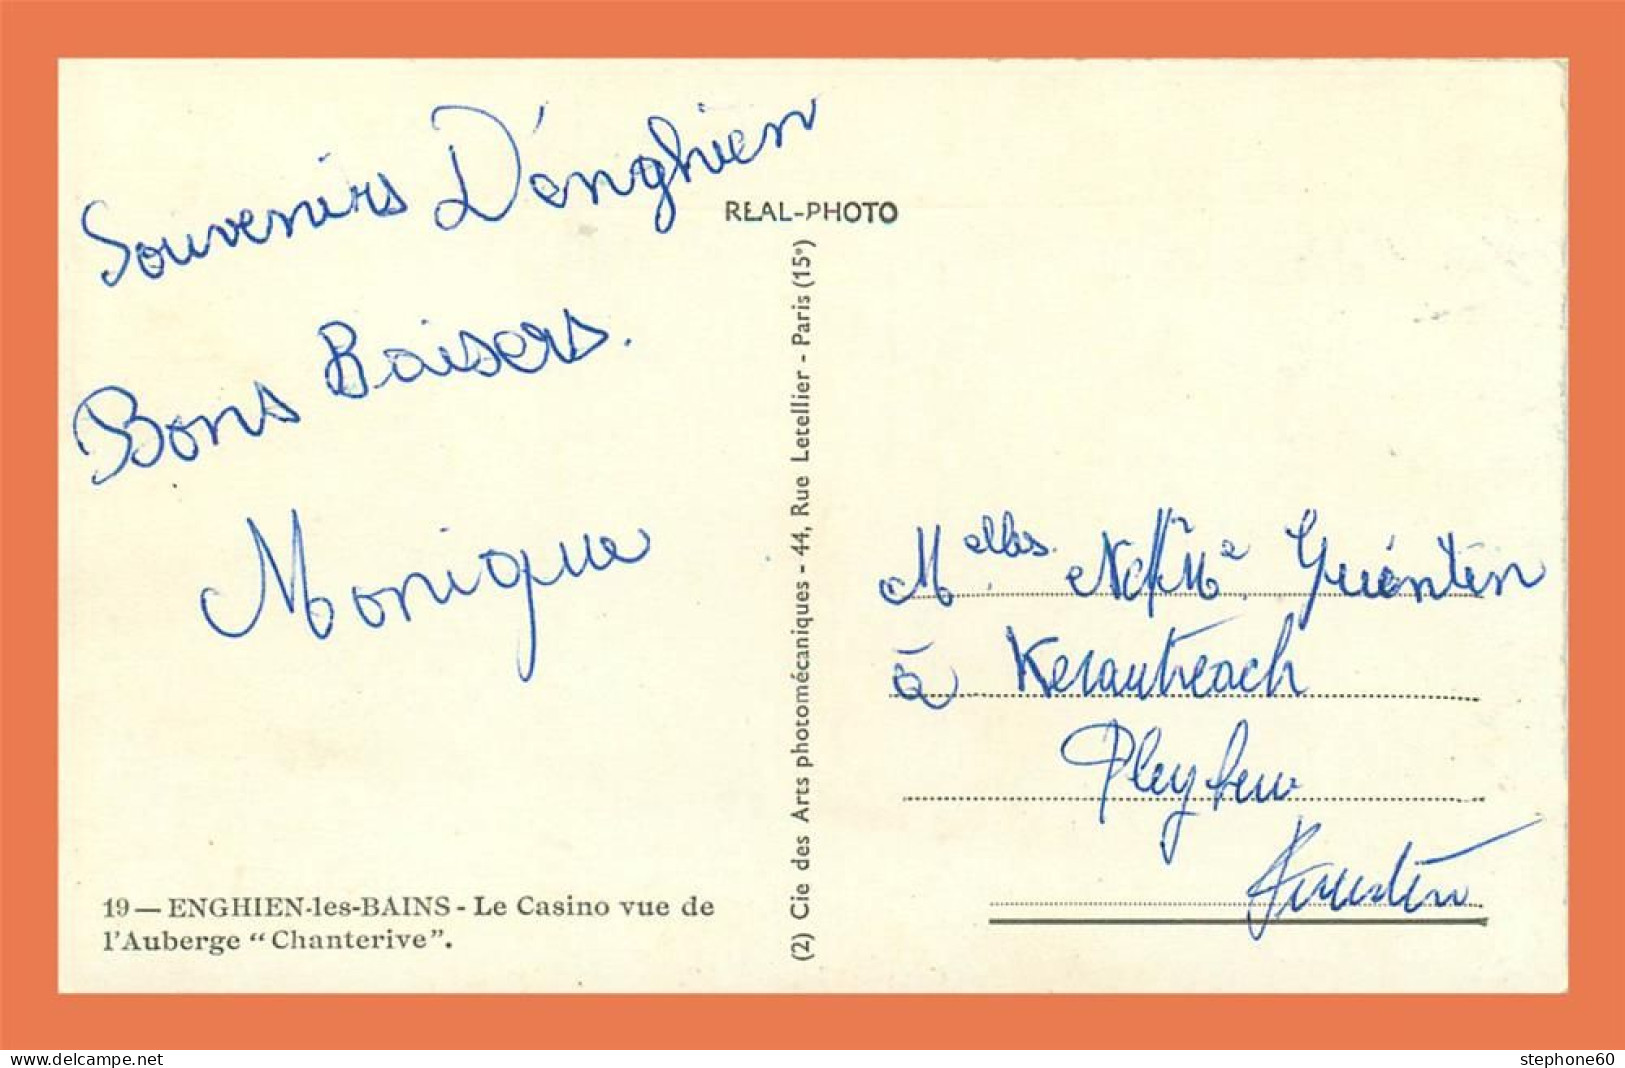 Souvenirs D'énghien
Bons Baisers.
Monique
19 — ENGHIEN-les-BAINS - Le Casino vue de
l'Auberge "Chanterive".
REAL-PHOTO
(2) Cie des Arts photomécaniques - 44, Rue Letellier - Paris (15e)
Melles
à Kerautreach
Pleyben
Finistère
www.delcampe.net
stephone60